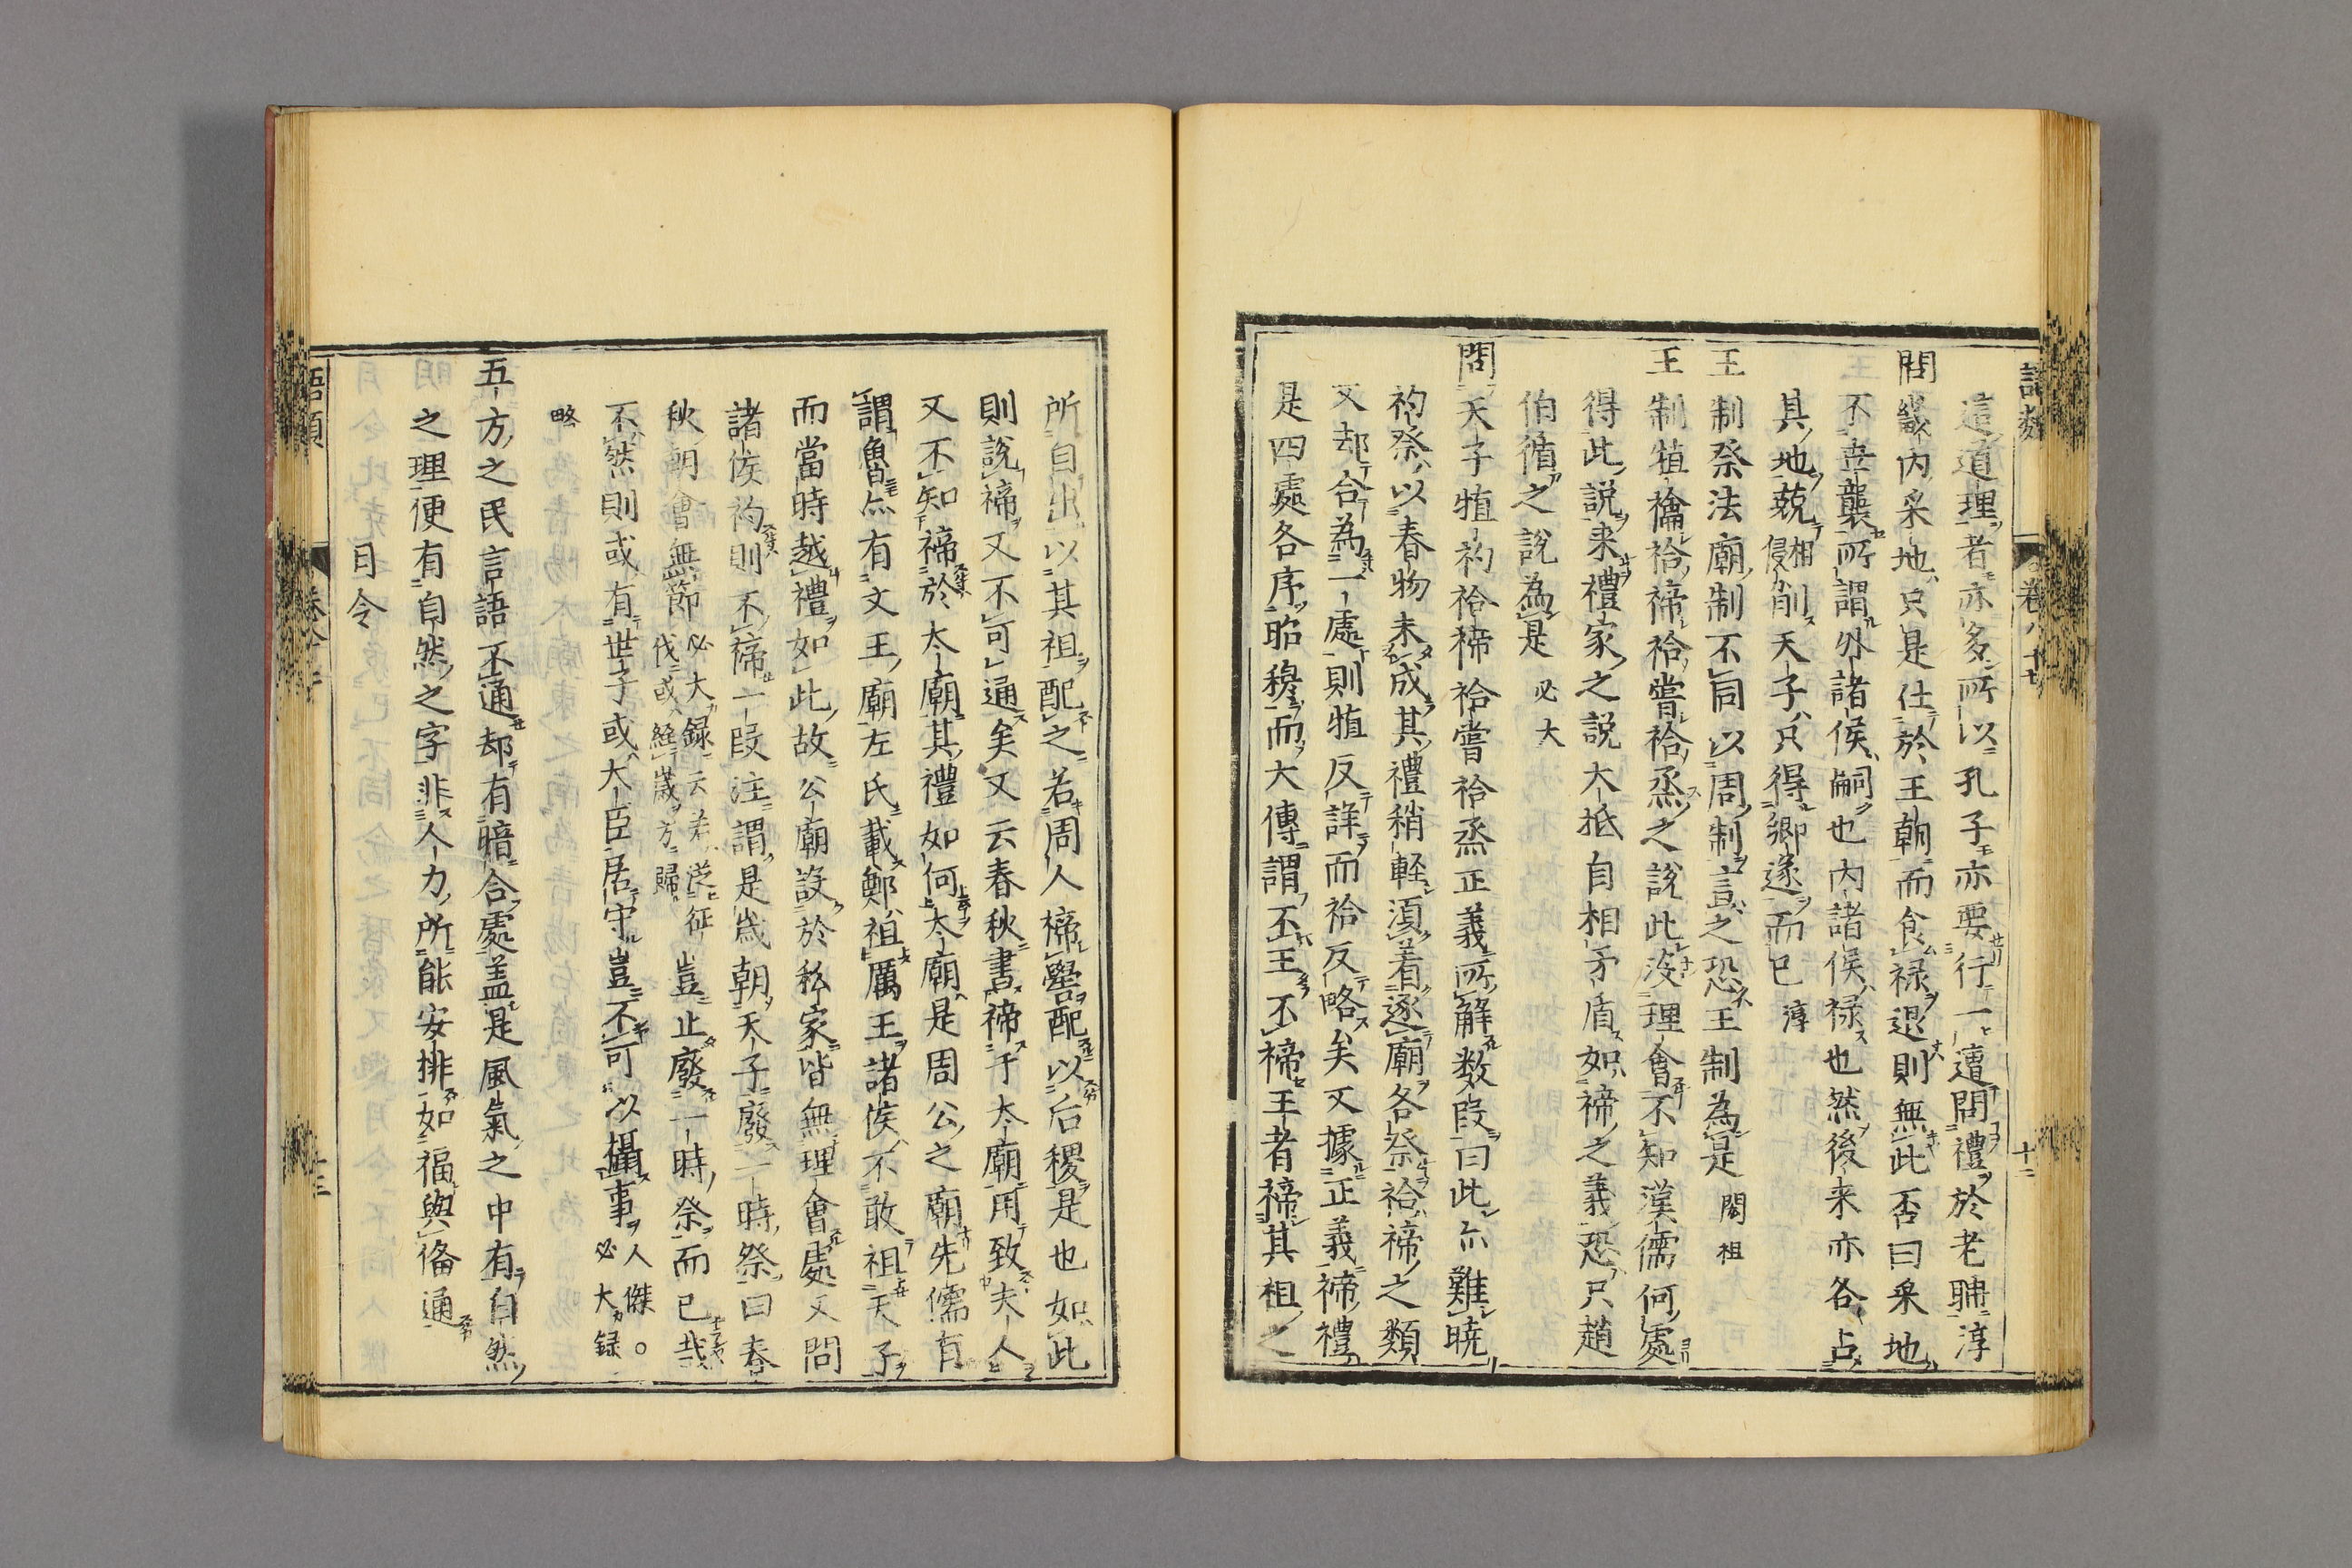 語類 卷八十七 十二
這道理者亦多所以孔子亦要行一遭問禮於老聃淳
問畿内采地只是仕於王朝而食禄退則無此否曰采地
不世襲所謂外諸侯嗣也内諸侯禄也然後来亦各占
其地競相侵削天子只得卿遂而已 淳
王制祭法廟制不同以周制言之恐王制為是 閎祖
王制犆禴祫禘祫嘗祫烝之説此没理會不知漢儒何處
得此説来禮家之説大抵自相矛盾如禘之義恐只趙
伯循之説為是 必大
問天子犆礿祫禘祫嘗祫烝正義所解数段曰此亦難曉
礿祭以春物未成其禮稍軽須着逐廟各祭祫禘之類
又却合為一處則犆反詳而祫反略矣又據正義禘禮
是四處各序昭穆而大傳謂不王不禘王者禘其祖之
所自出以其祖配之若周人禘嚳配以后稷是也如此
則説禘又不可通矣又云春秋書禘于太廟用致夫人
又不知禘於太廟其禮如何太廟是周公之廟先儒有
謂魯亦有文王廟左氏載鄭祖厲王諸侯不敢祖天子
而當時越禮如此故公廟設於私家皆無理會處又問
諸侯礿則不禘一段注謂是歳朝天子廢一時祭曰春
秋朝會無節必大録云若從征伐或經歳方歸豈止廢一時祭而已哉
不然則或有世子或大臣居守豈不可以攝事人傑。必大録
略
五方之民言語不通却有暗合處盖是風氣之中有自然
之理便有自然之字非人力所能安排如福與偹通
月令
語類